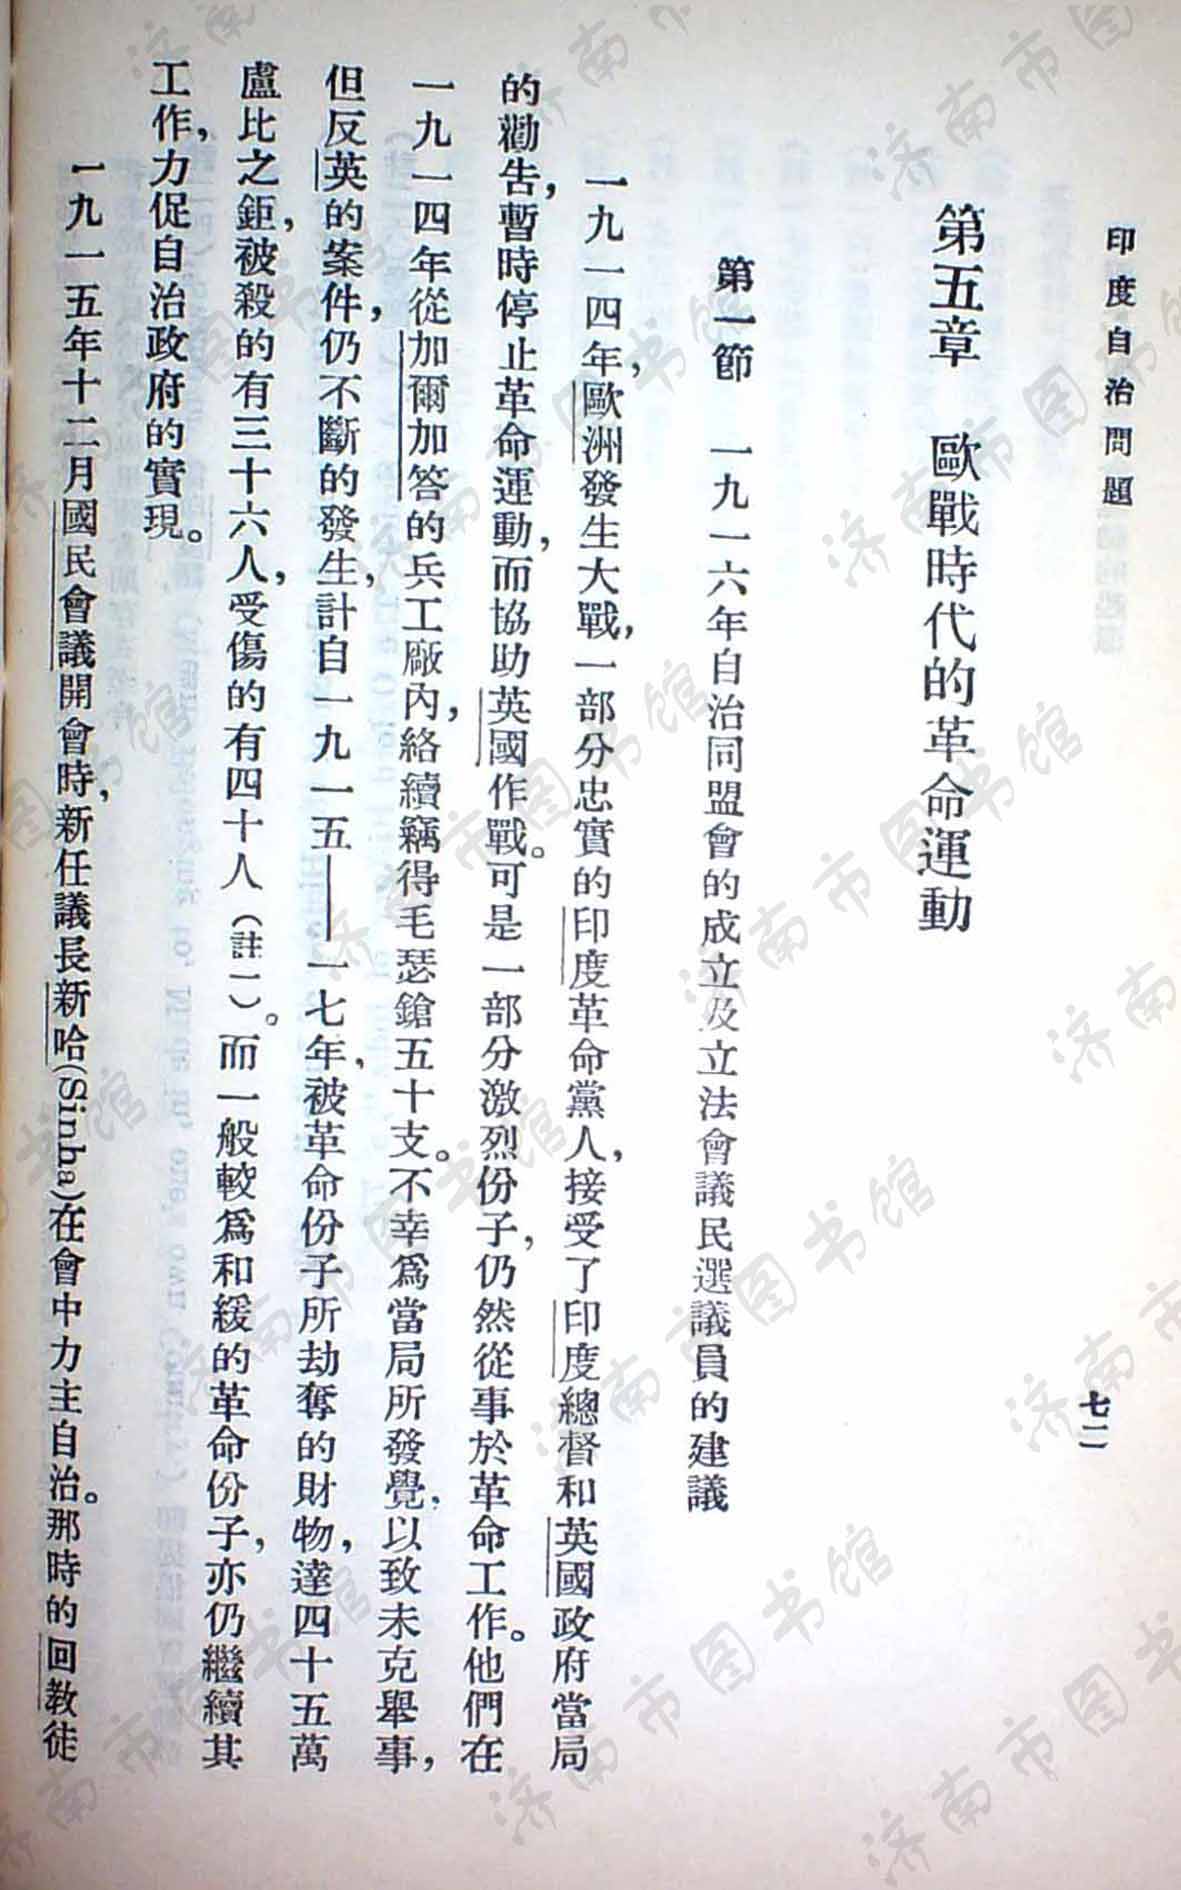 印度自治問題
七二
第五章　歐戰時代的革命運動
第一節　一九一六年自治同盟會的成立及立法會議民選議員的建議
一九一四年，歐洲發生大戰，一部分忠實的印度革命黨人，接受了印度總督和英國政府當局
的勸告，暫時停止革命運動，而協助英國作戰。可是一部分激烈份子，仍然從事於革命工作。他們在
一九一四年從加爾加答的兵工廠內，絡續竊得毛瑟鎗五十支。不幸爲當局所發覺，以致未克舉事，
但反英的案件，仍不斷的發生，計自一九一五——一七年，被革命份子所劫奪的財物，達四十五萬
盧比之鉅，被殺的有三十六人，受傷的有四十人（註一）。而一般較爲和緩的革命份子，亦仍繼續其
工作，力促自治政府的實現。
一九一五年十二月國民會議開會時，新任議長新哈(Sinha)在會中力主自治。那時的回教徒
济南市图书馆